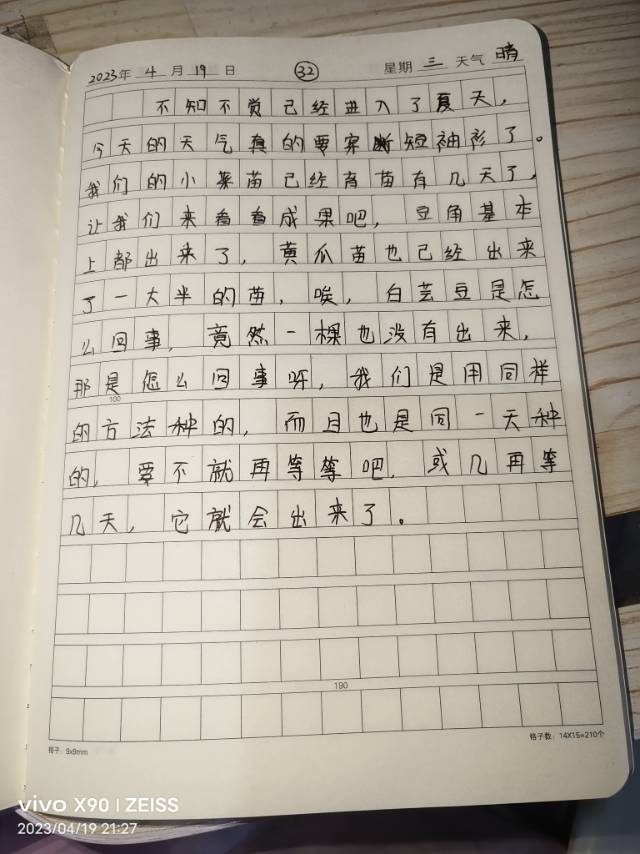 2023年 4月 19日 32 星期 三 天气 晴
不知不觉已经进入了夏天,
今天的天气真的要穿断短袖衫了。
我们的小菜苗已经育苗有几天了,
让我们来看看成果吧, 豆角基本
上都出来了, 黄瓜苗也已经出来
了一大半的苗, 唉, 白芸豆是怎
么回事, 竟然一棵也没有出来,
那是怎么回事呀, 我们是用同样
100
的方法种的, 而且也是同一天种
的, 要不就再等等吧, 或几再等
几天, 它就会出来了。
190
格子: 9x9mm
格子数: 14X15=210个
vivo X90 | ZEISS
2023/04/19 21:27